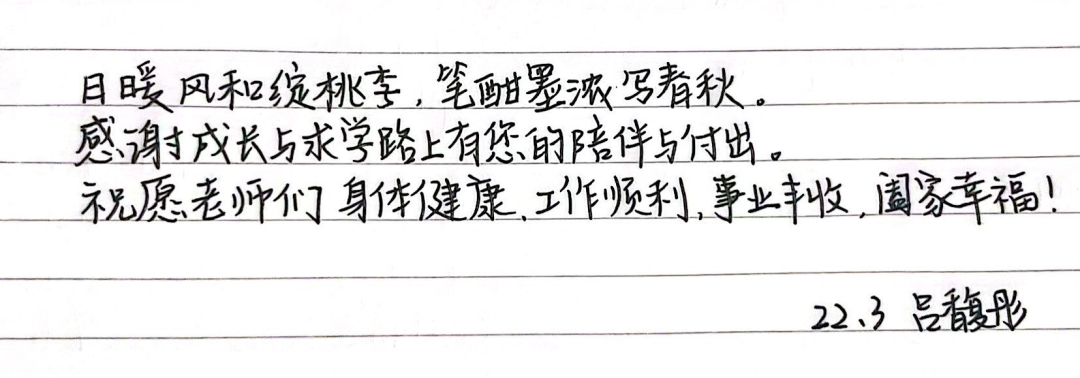 日暖风和绽桃李，笔酣墨浓写春秋。
感谢成长与求学路上有您的陪伴与付出。
祝愿老师们身体健康、工作顺利，事业丰收，阖家幸福！
22.3 吕馥彤